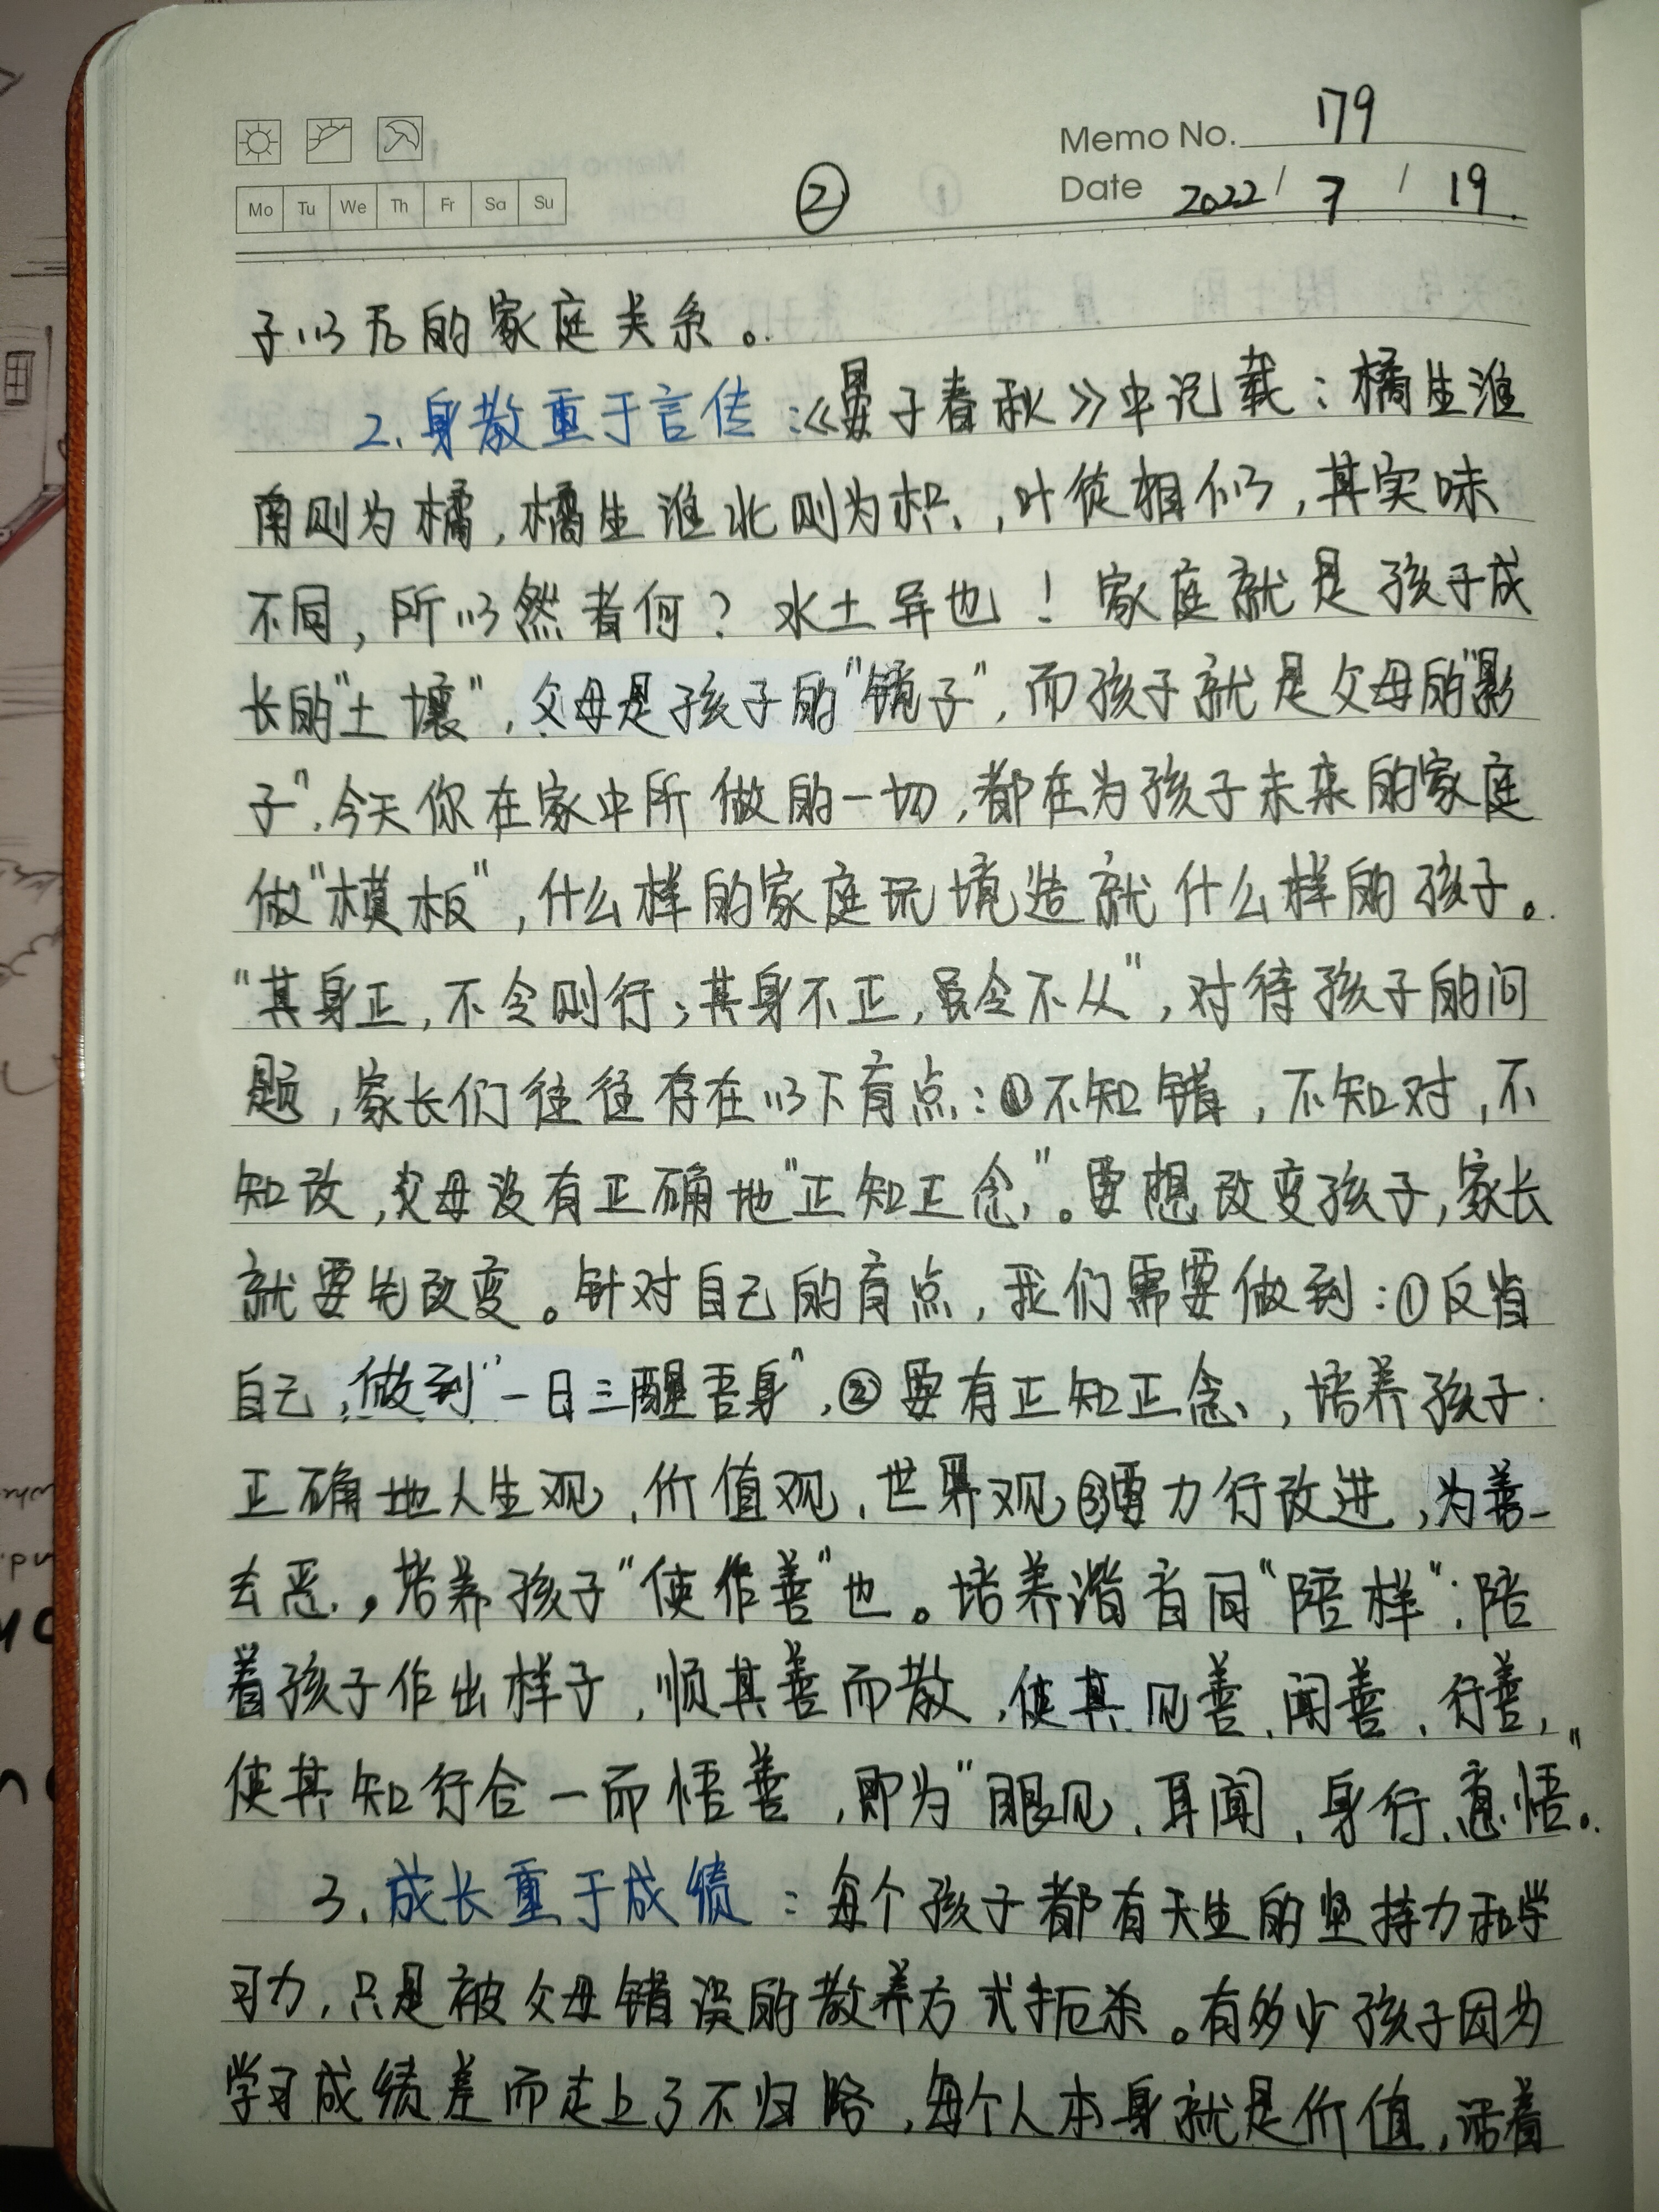 Memo No. 179
Mo Tu We Th Fr Sa Su
②
Date 2022 / 7 / 19.
子以后的家庭关系。
2.身教重于言传:《晏子春秋》中记载:橘生淮
南则为橘,橘生淮北则为枳,叶徒相似,其实味
不同,所以然者何?水土异也!家庭就是孩子成
长的"土壤",父母是孩子的"镜子",而孩子就是父母的"影
子",今天你在家中所做的一切,都在为孩子未来的家庭
做"模板",什么样的家庭环境造就什么样的孩子。
"其身正,不令则行;其身不正,虽令不从",对待孩子的问
题,家长们往往存在以下盲点:①不知错,不知对,不
知改,父母没有正确地"正知正念"。要想改变孩子,家长
就要先改变。针对自己的盲点,我们需要做到:①反省
自己,做到"一日三醒吾身",②要有正知正念,培养孩子
正确地人生观,价值观,世界观③要力行改进,为善
去恶,培养孩子"使作善"也。培养谐音同"陪样":陪
着孩子作出样子,顺其善而教,使其见善、闻善、行善,
使其知行合一而悟善,即为"眼见、耳闻、身行、意悟"。
3.成长重于成绩:每个孩子都有天生的坚持力和学
习力,只是被父母错误的教养方式扼杀。有多少孩子因为
学习成绩差而走上了不归路,每个人本身就是价值,活着